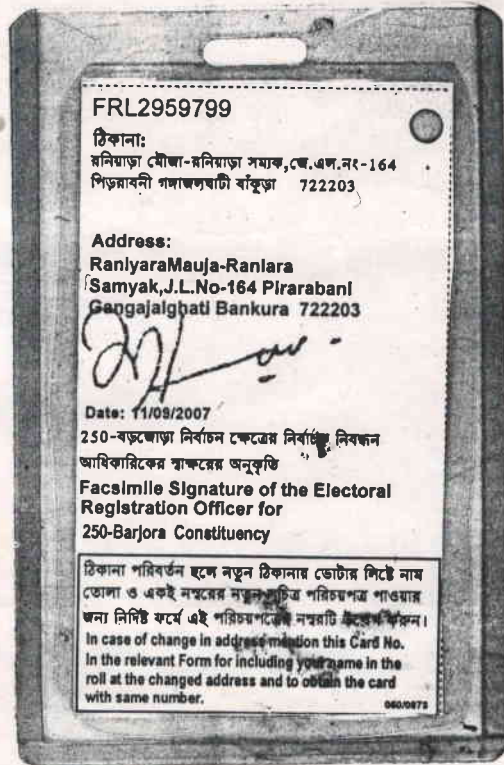 FRL2959799
ঠিকানা:
রনিয়াড়া মৌজা-রনিয়াড়া সম্যক,জে.এল.নং-164
পিড়রাবনী গঙ্গাজলঘাটী বাঁকুড়া 722203
Address:
RaniyaraMauja-Raniara
Samyak,J.L.No-164 Pirarabani
Gangajalghati Bankura 722203
Date: 11/09/2007
250-বড়জোড়া নির্বাচন ক্ষেত্রের নির্বাচক নিবন্ধন
আধিকারিকের স্বাক্ষরের অনুকৃতি
Facsimile Signature of the Electoral
Registration Officer for
250-Barjora Constituency
ঠিকানা পরিবর্তন হলে নতুন ঠিকানার ভোটার লিষ্টে নাম
তোলা ও একই নম্বরের নতুন সচিত্র পরিচয়পত্র পাওয়ার
জন্য নির্দিষ্ট ফর্মে এই পরিচয়পত্রের নম্বরটি উল্লেখ করুন।
In case of change in address mention this Card No.
In the relevant Form for including your name in the
roll at the changed address and to obtain the card
with same number.